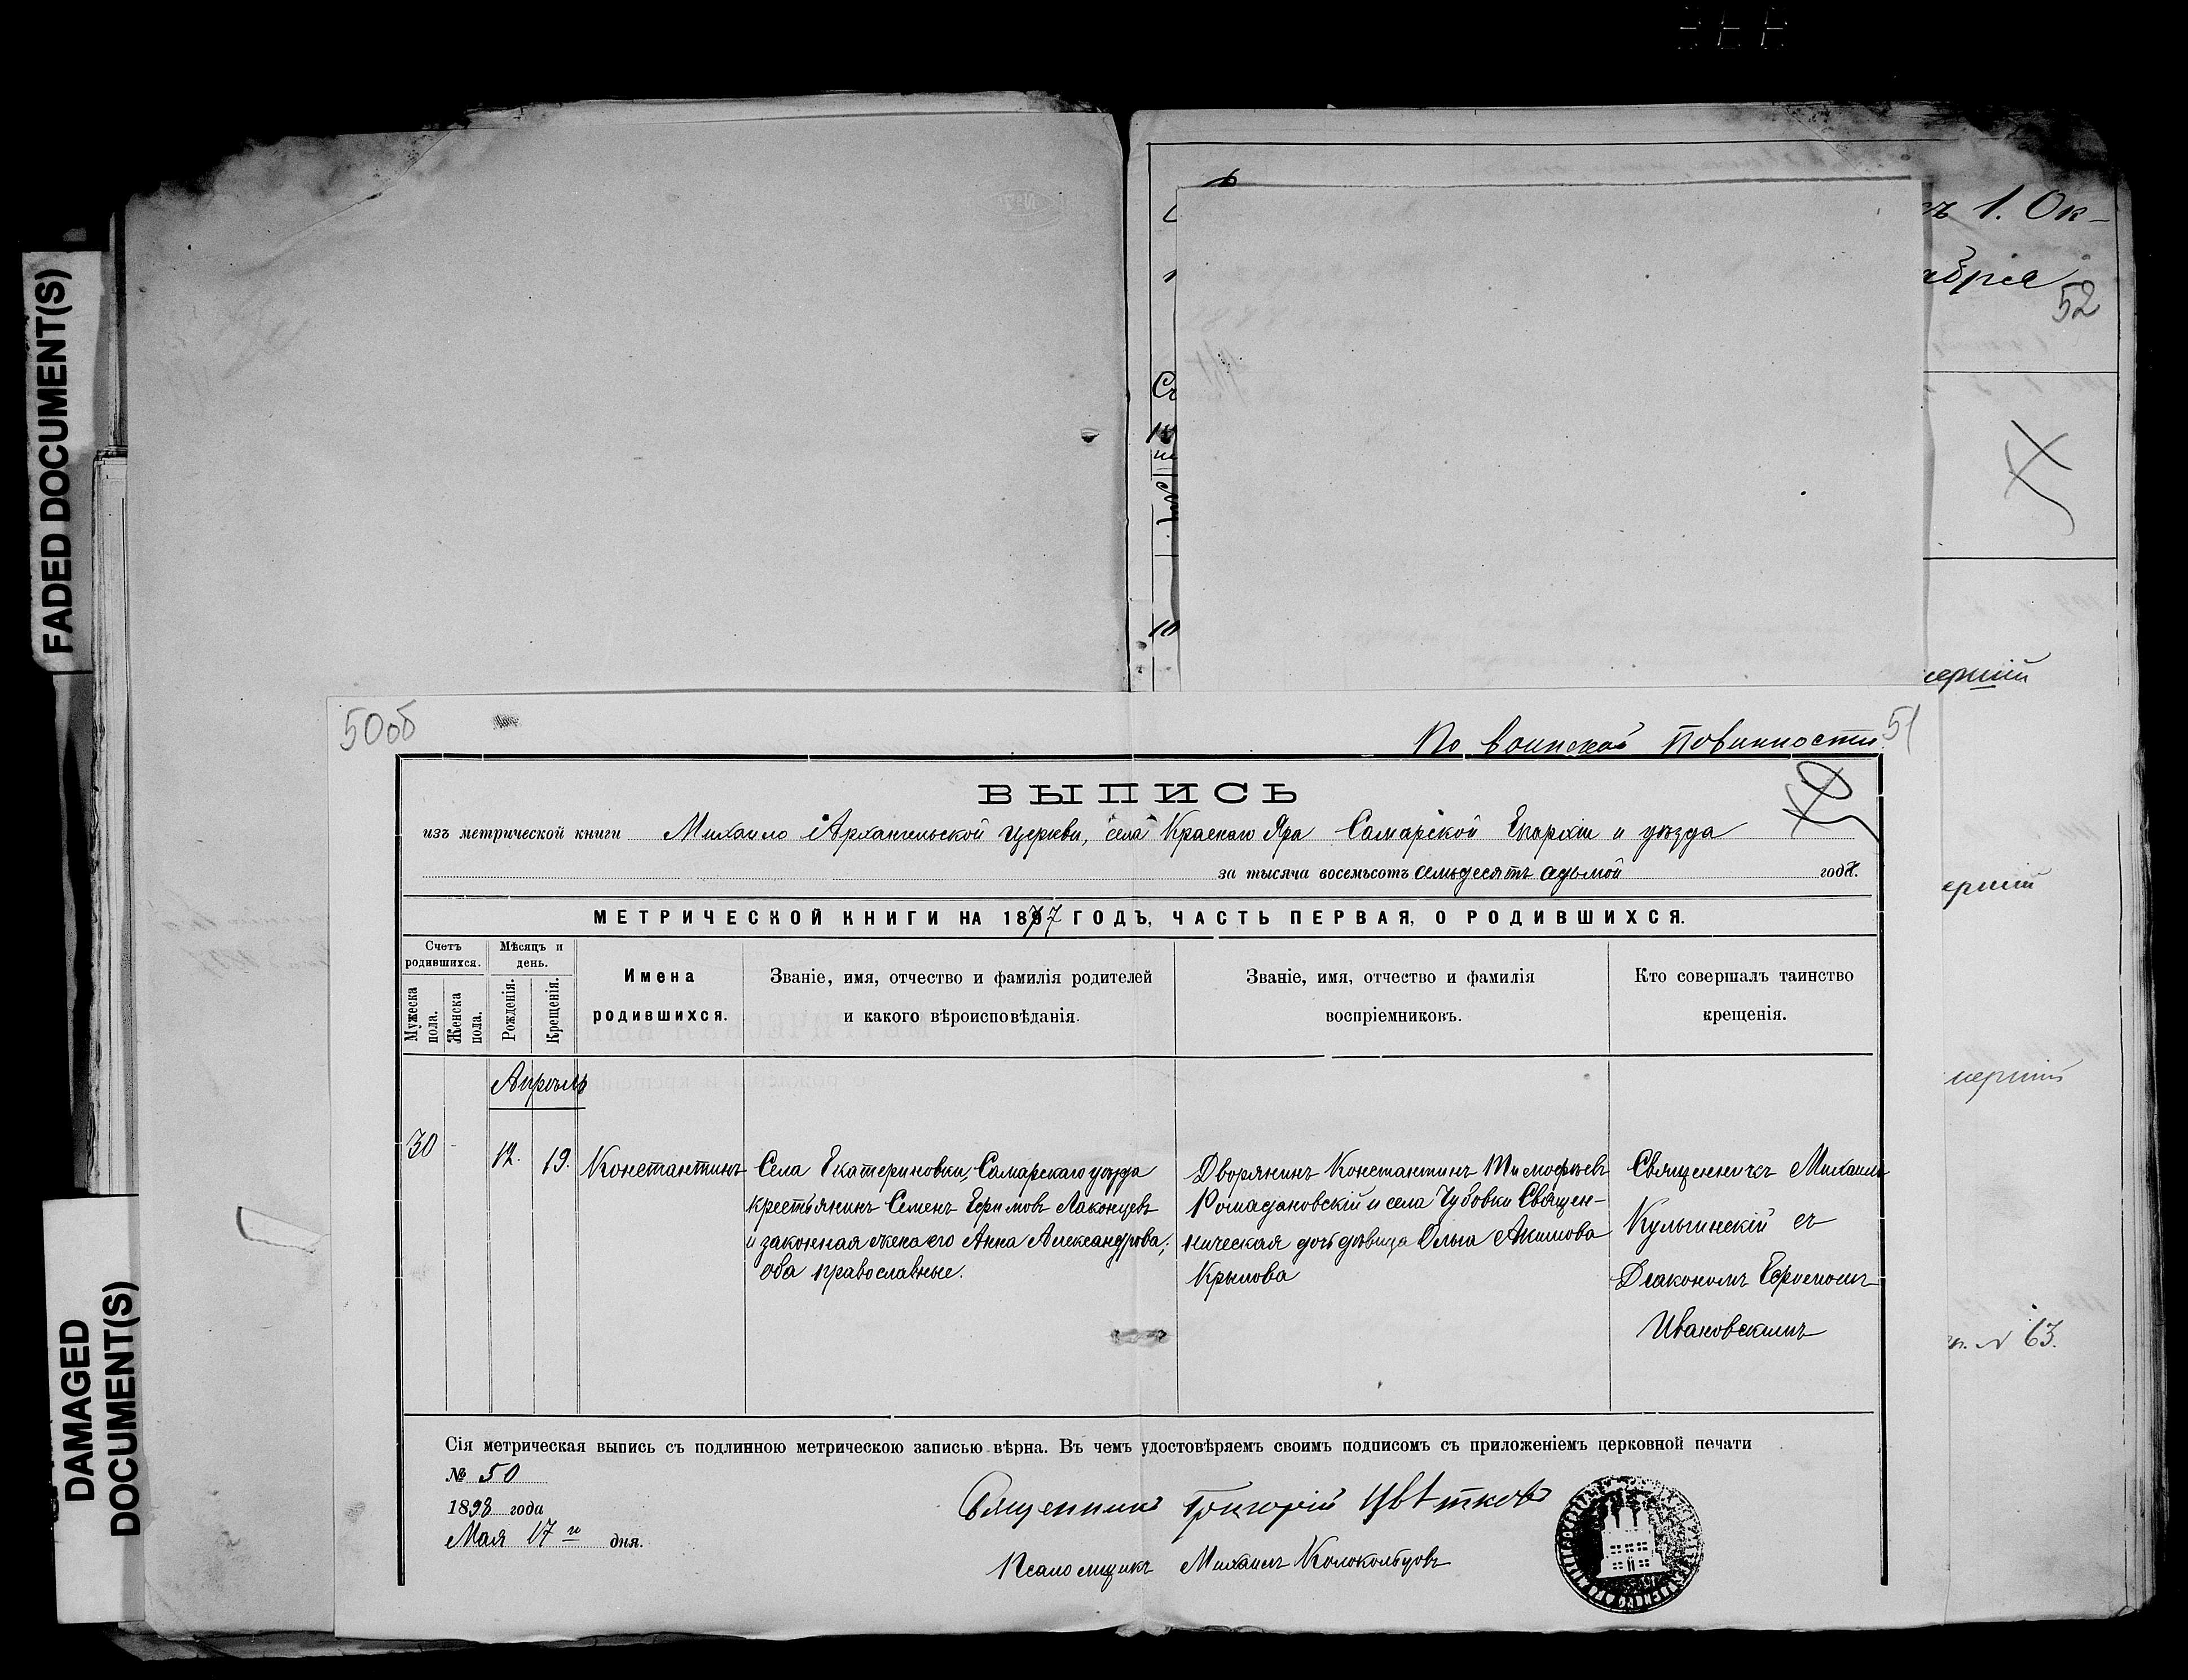 FADED DOCUMENT(S)
DAMAGED
DOCUMENT(S)
1. Ок-
52
10
N 63.
50об
По воинской повинности
51
ВЫПИСЬ
изъ метрической книги Михаило Архангельской церкви, села Краснаго Яра Самарской Епархіи и уѣзда
за тысяча восемьсотъ семьдесятъ седьмой года.
МЕТРИЧЕСКОЙ КНИГИ НА 1877 ГОДЪ, ЧАСТЬ ПЕРВАЯ, О РОДИВШИХСЯ.
Счетъ родившихся.
Мужеска пола.
Женска пола.
Мѣсяцъ и день.
Рожденія.
Крещенія.
Имена родившихся.
Званіе, имя, отчество и фамилія родителей
и какого вѣроисповѣданія.
Званіе, имя, отчество и фамилія
воспріемниковъ.
Кто совершалъ таинство
крещенія.
Апрѣль
30 - 12. 19. Константинъ
Села Екатериновки, Самарскаго уѣзда
крестьянинъ Семенъ Ефимовъ Лаконцевъ
и законная жена его Анна Александрова;
оба православные.
Дворянинъ Константинъ Тимофѣевъ
Ромадановскій и села Чубовки Священ-
ническая дочь дѣвица Ольга Акимова
Крылова
Священникъ Михаилъ
Кульчинскій съ
Діакономъ
Ивановскимъ
Сія метрическая выпись съ подлинною метрическою записью вѣрна. Въ чемъ удостовѣряемъ своимъ подписомъ съ приложеніемъ церковной печати
№ 50
1898 года
Мая 17го дня.
Священникъ Григорій Цвѣтковъ
Псаломщикъ Михаилъ Колокольцовъ